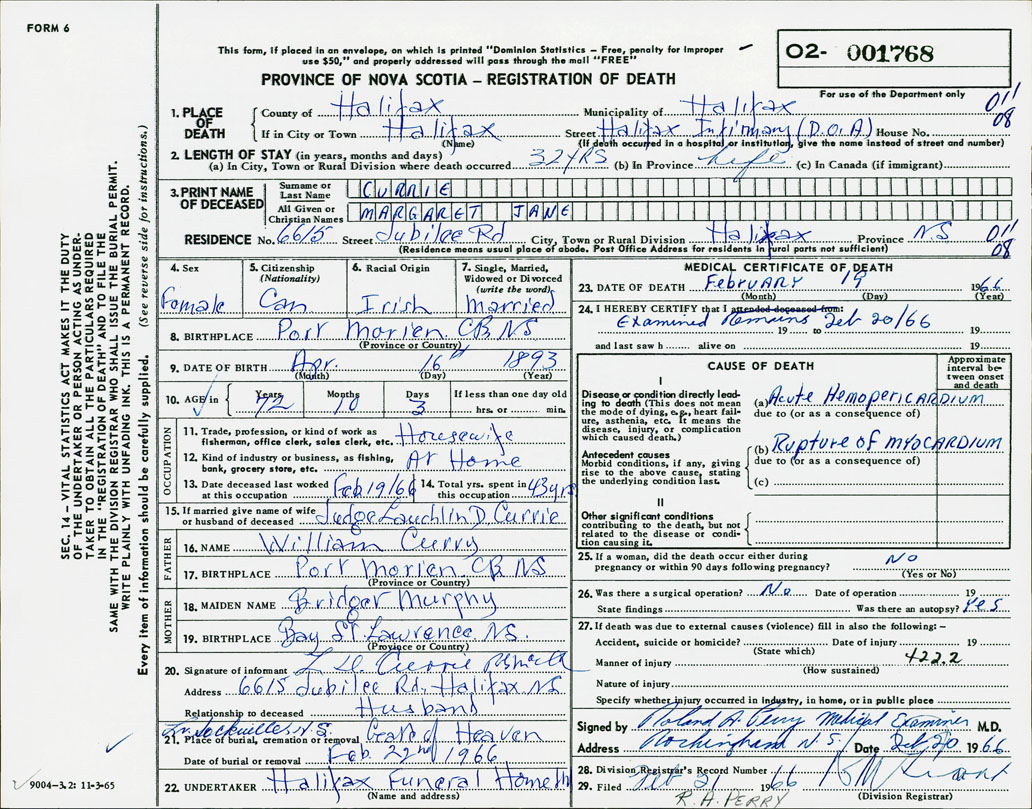 FORM 6
This form, if placed in an envelope, on which is printed "Dominion Statistics – Free, penalty for improper
use $50," and properly addressed will pass through the mail "FREE"
O2- 001768
PROVINCE OF NOVA SCOTIA – REGISTRATION OF DEATH
For use of the Department only
011
08
1. PLACE OF DEATH
County of Halifax Municipality of Halifax
If in City or Town Halifax Street Halifax Infirmary (D.O.A) House No.
(Name) (If death occurred in a hospital or institution, give the name instead of street and number)
2. LENGTH OF STAY (in years, months and days)
(a) In City, Town or Rural Division where death occurred 32 YRS (b) In Province Life (c) In Canada (if immigrant)
3. PRINT NAME OF DECEASED
Surname or Last Name CURRIE
All Given or Christian Names MARGARET JANE
RESIDENCE No. 6615 Street Jubilee Rd City, Town or Rural Division Halifax Province N.S
011
08
(Residence means usual place of abode. Post Office Address for residents in rural parts not sufficient)
4. Sex
Female
5. Citizenship
(Nationality)
Can
6. Racial Origin
Irish
7. Single, Married,
Widowed or Divorced
(write the word)
Married
8. BIRTHPLACE Port Morien CB NS
(Province or Country)
9. DATE OF BIRTH Apr. 16th 1893
(Month) (Day) (Year)
10. AGE in Years 72 Months 10 Days 3 If less than one day old
hrs. or min.
OCCUPATION
11. Trade, profession, or kind of work as
fisherman, office clerk, sales clerk, etc. Housewife
12. Kind of industry or business, as fishing,
bank, grocery store, etc. At Home
13. Date deceased last worked
at this occupation Feb 19/66
14. Total yrs. spent in
this occupation 43 yrs
15. If married give name of wife
or husband of deceased Judge Lauchlin D. Currie
FATHER
16. NAME William Curry
17. BIRTHPLACE Port Morien CB NS
(Province or Country)
MOTHER
18. MAIDEN NAME Bridget Murphy
19. BIRTHPLACE Bay St. Lawrence NS.
(Province or Country)
20. Signature of informant L D Currie
Address 6615 Jubilee Rd. Halifax NS
Relationship to deceased Husband
Lr. Sackville, N.S.
21. Place of burial, cremation or removal Gate of Heaven
Date of burial or removal Feb 22nd 1966
22. UNDERTAKER Halifax Funeral Home
(Name and address)
MEDICAL CERTIFICATE OF DEATH
23. DATE OF DEATH FEBRUARY 19 1966
(Month) (Day) (Year)
24. I HEREBY CERTIFY that I attended deceased from:
Examined Remains 19 to Feb 20/66 19
and last saw h alive on 19
CAUSE OF DEATH
Approximate
interval be-
tween onset
and death
I
Disease or condition directly lead-
ing to death (This does not mean
the mode of dying, e.g., heart fail-
ure, asthenia, etc. It means the
disease, injury, or complication
which caused death.)
(a) Acute HemopericARDIUM
due to (or as a consequence of)
Antecedent causes
Morbid conditions, if any, giving
rise to the above cause, stating
the underlying condition last.
(b) Rupture of MYOCARDIUM
due to (or as a consequence of)
(c)
II
Other significant conditions
contributing to the death, but not
related to the disease or condi-
tion causing it.
25. If a woman, did the death occur either during
pregnancy or within 90 days following pregnancy? No
(Yes or No)
26. Was there a surgical operation? No Date of operation 19
State findings Was there an autopsy? Yes
27. If death was due to external causes (violence) fill in also the following: –
Accident, suicide or homicide? Date of injury 19
(State which)
Manner of injury 422.2
(How sustained)
Nature of injury
Specify whether injury occurred in industry, in home, or in public place
Signed by Roland A. Perry Medical Examiner M.D.
Address Rockingham N.S. Date Feb 20 1966
28. Division Registrar's Record Number
29. Filed Feb 21 1966
(Division Registrar)
R.A. PERRY
SEC. 14 – VITAL STATISTICS ACT MAKES IT THE DUTY
OF THE UNDERTAKER OR PERSON ACTING AS UNDER-
TAKER TO OBTAIN ALL THE PARTICULARS REQUIRED
IN THE "REGISTRATION OF DEATH" AND TO FILE THE
SAME WITH THE DIVISION REGISTRAR WHO SHALL ISSUE THE BURIAL PERMIT.
WRITE PLAINLY WITH UNFADING INK. THIS IS A PERMANENT RECORD.
Every item of information should be carefully supplied. (See reverse side for instructions.)
9004–3.2: 11-3-65